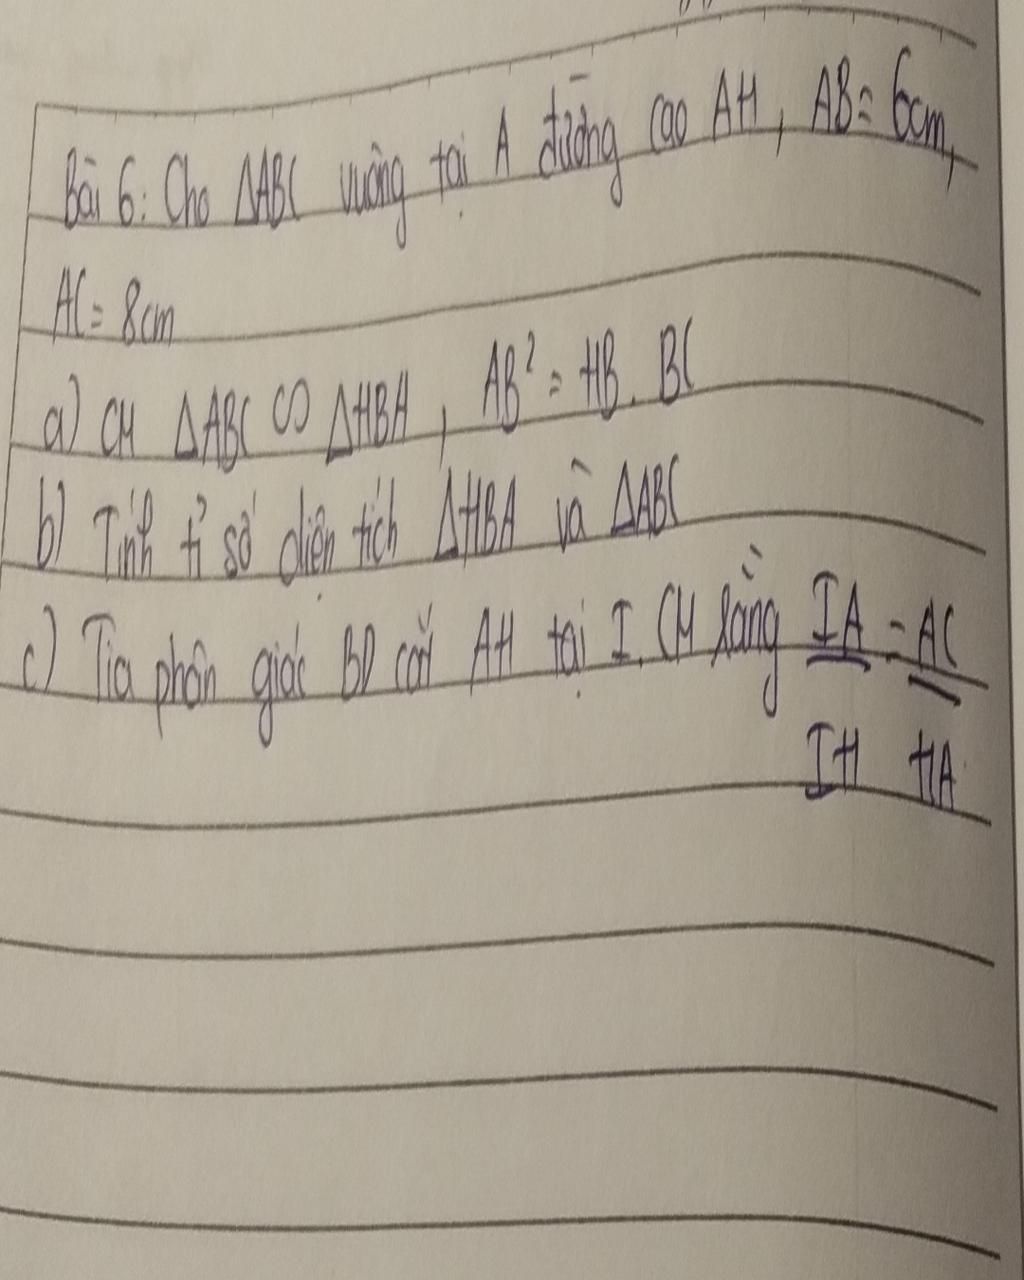 Bài 6: Cho ΔABC vuông tại A đường cao AH, AB = 6cm,
AC = 8cm
a) CM ΔABC ∽ ΔHBA, AB² = HB. BC
b) Tính tỉ số diện tích ΔHBA và ΔABC
c) Tia phân giác BD cắt AH tại I. CM rằng IA = AC
IH HA